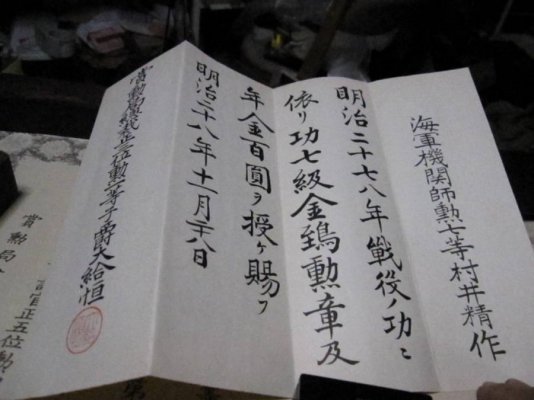 海軍機関師勲七等村井精作
明治二十七八年戦役ノ功ニ
依リ功七級金鵄勲章及
年金百圓ヲ授ケ賜フ
明治二十八年十一月十八日
賞勲局総裁正三位勲一等子爵大給恒
賞勲局
正五位勲